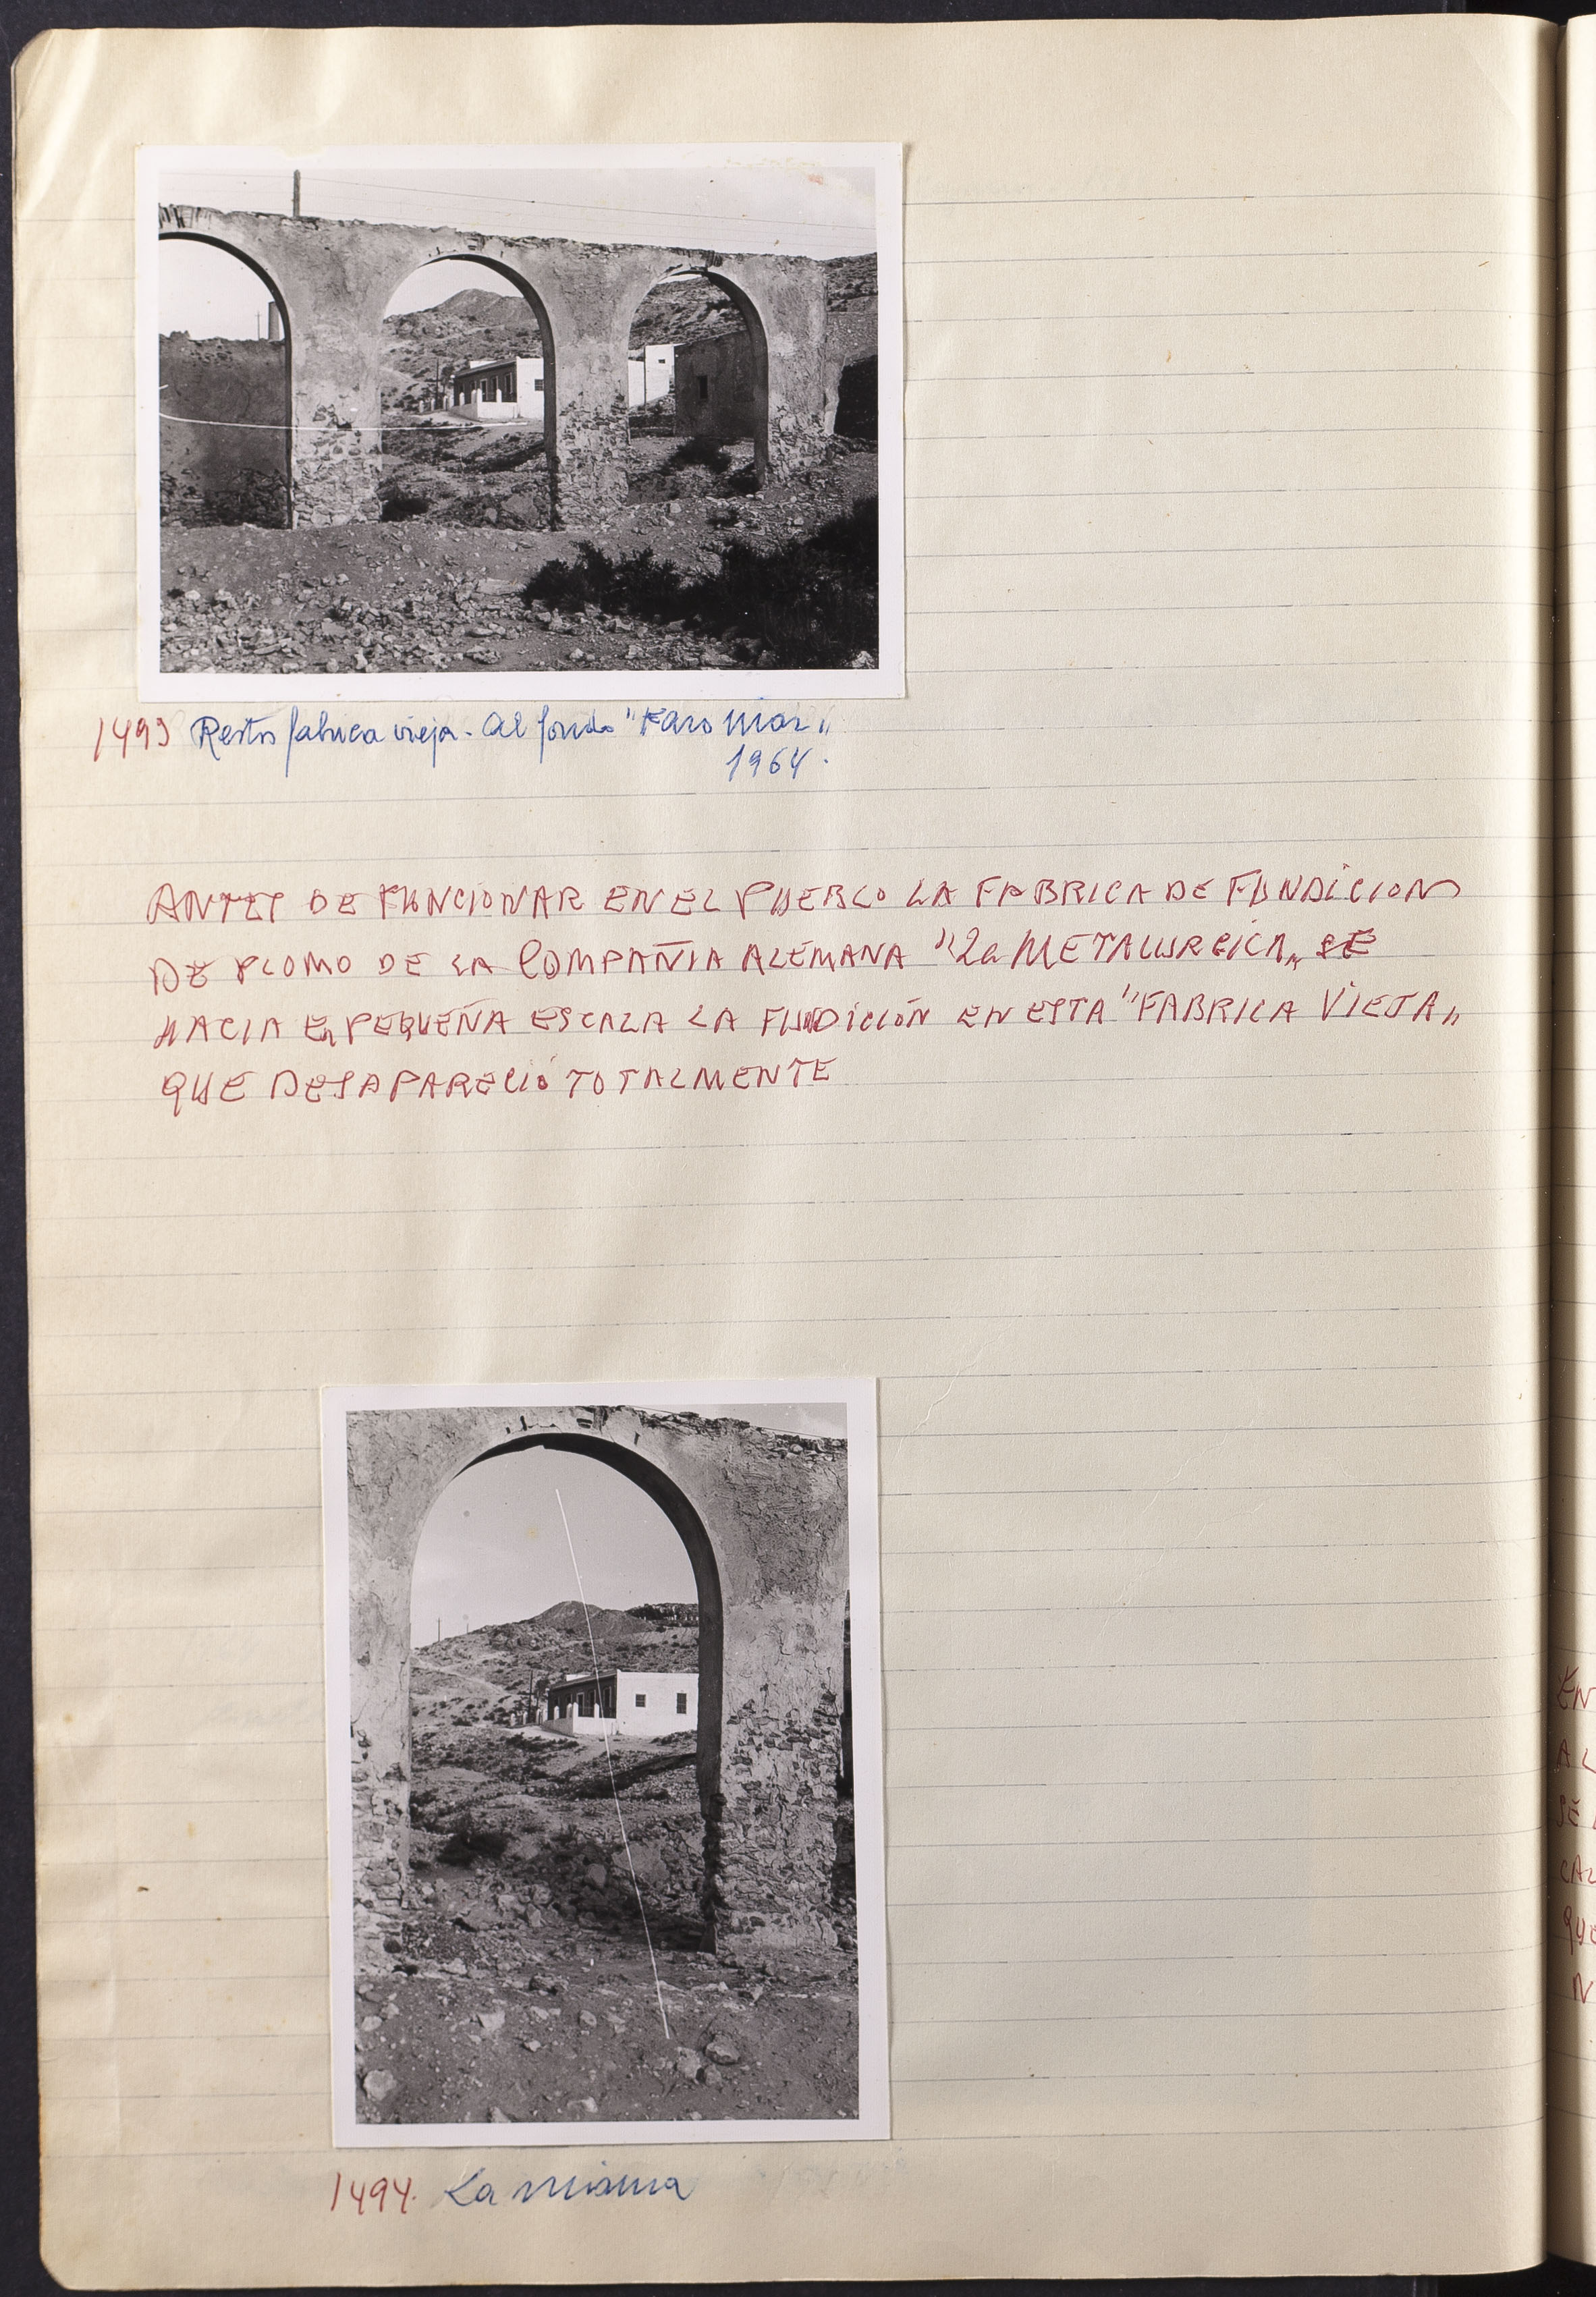 1493 Restos fabrica vieja. Al fondo "Faro Mar"
1964.
ANTES DE FUNCIONAR EN EL PUEBLO LA FABRICA DE FUNDICION
DE PLOMO DE LA COMPAÑIA ALEMANA "La METALURGICA" SE
HACIA En PEQUEÑA ESCALA LA FUNDICIÓN EN ESTA "FABRICA VIEJA"
QUE DESAPARECIÓ TOTALMENTE
1494. La misma
EN
AL
SE
CAL
QUE
N